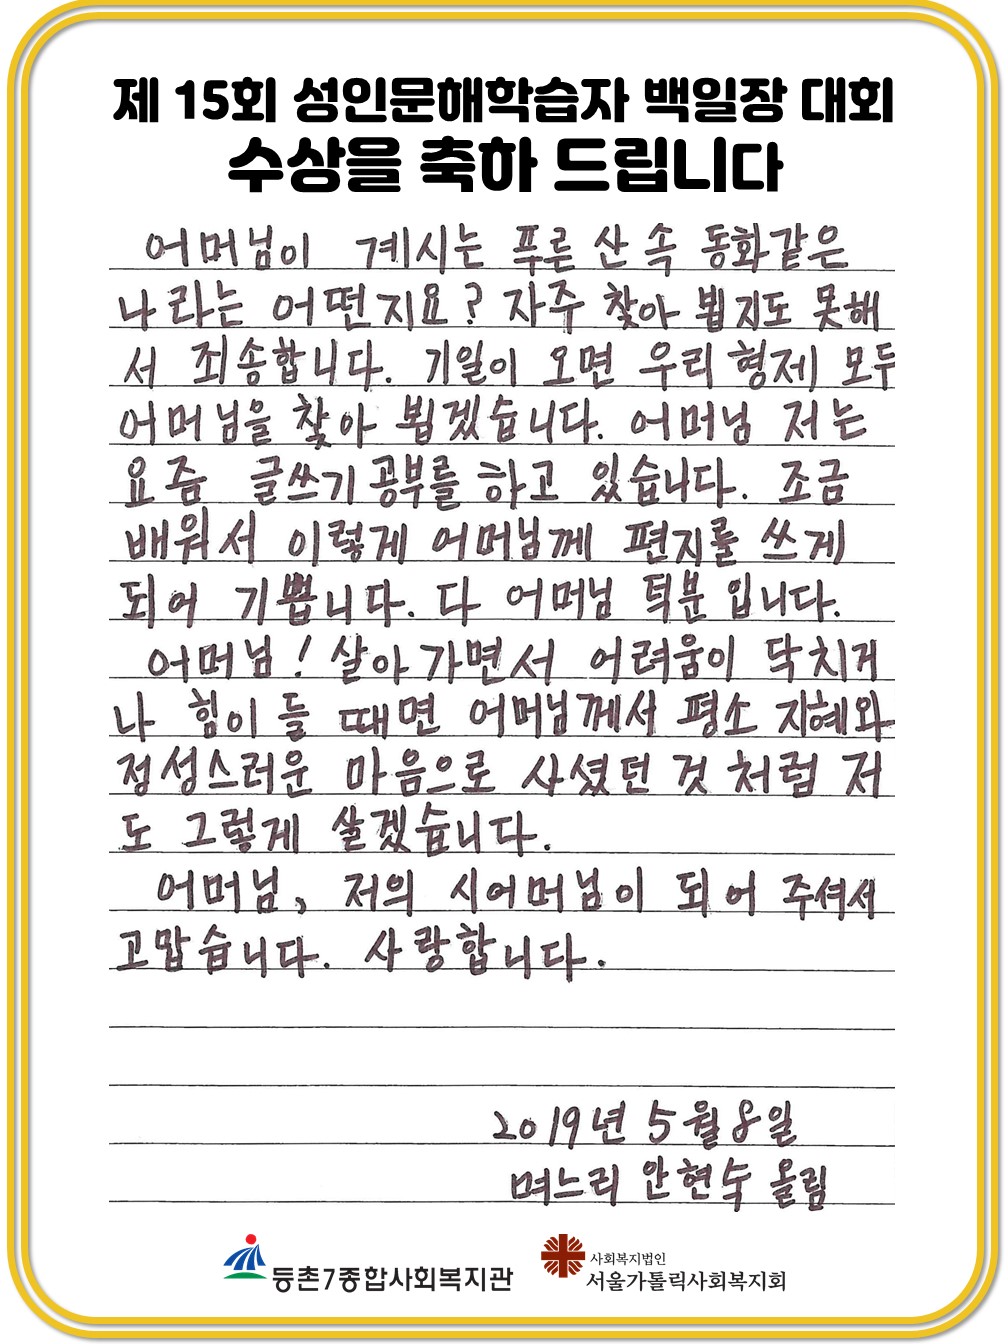 제 15회 성인문해학습자 백일장 대회
수상을 축하 드립니다
어머님이 계시는 푸른 산 속 동화같은
나라는 어떤지요? 자주 찾아 뵙지도 못해
서 죄송합니다. 기일이 오면 우리 형제 모두
어머님을 찾아 뵙겠습니다. 어머님 저는
요즘 글쓰기 공부를 하고 있습니다. 조금
배워서 이렇게 어머님께 편지를 쓰게
되어 기쁩니다. 다 어머님 턱분 입니다.
어머님! 살아가면서 어려움이 닥치거
나 힘이 들 때면 어머님께서 평소 지혜와
정성스러운 마음으로 사셨던 것 처럼 저
도 그렇게 살겠습니다.
어머님, 저의 시어머님이 되어 주셔서
고맙습니다. 사랑합니다.
2019년 5월 8일
며느리 안현숙 올림
등촌7종합사회복지관
사회복지법인
서울가톨릭사회복지회